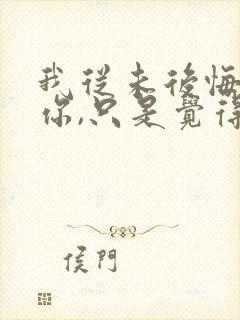 我從未後悔
你,只是覺得
侯門